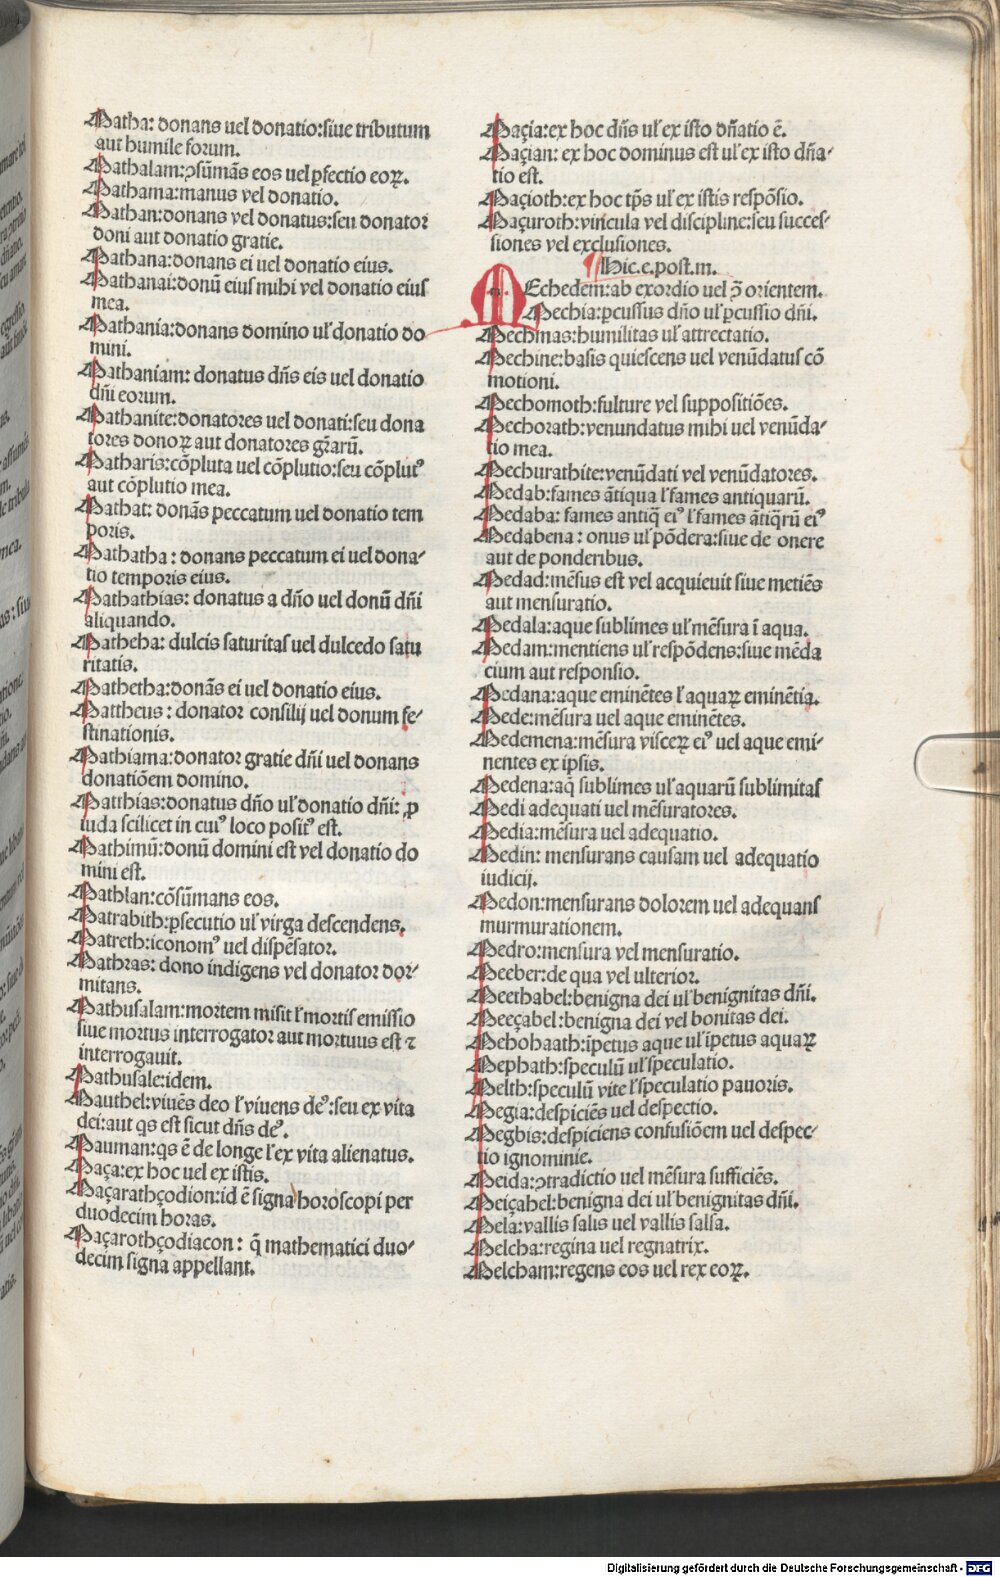 Matha: donans uel donatio:siue tributum
aut humile forum.
Mathalam:ꝯsũmãs eos uel ꝑfectio eoꝝ.
Mathama:manus vel donatio.
Mathan:donans vel donatus:seu donator
doni aut donatio gratie.
Mathana:donans ei vel donatio eius.
Mathanai:donũ eius mihi vel donatio eius
mea.
Mathania:donans domino ul' donatio do
mini.
Mathaniam: donatus dñs eis uel donatio
dñi eorum.
Mathanite:donatores uel donati:seu dona
tores donoꝝ aut donatores gr̃arũ.
Matharis:cõpluta uel cõplutio:seu cõplutꝰ
aut cõplutio mea.
Mathat: donãs peccatum uel donatio tem
poris.
Mathatha: donans peccatum ei vel dona-
tio temporis eius.
Mathathias: donatus a dño uel donũ dñi
aliquando.
Matheha: dulcis saturitas uel dulcedo satu
ritatis.
Mathetha:donãs ei uel donatio eius.
Mattheus: donator consilij uel donum fe-
stinationis.
Mathiama:donator gratie dñi uel donans
donatiõem domino.
Matthias:donatus dño ul' donatio dñi: ꝓ
iuda scilicet in cuiꝰ loco positꝰ est.
Mathimũ:donũ domini est vel donatio do
mini est.
Mathlan:cõsũmans eos.
Matrabith:ꝑsecutio ul' virga descendens.
Matreth:iconomꝰ uel dispẽsator.
Mathras: dono indigens vel donator dor-
mitans.
Mathusalam:mortem misit l' mortis emissio
siue mortus interrogator aut mortuus est ⁊
interrogauit.
Mathusale:idem.
Mauthel:viuẽs deo l' viuens deꝰ:seu ex vita
dei:aut qs est sicut dñs deꝰ.
Mauman:qs ẽ de longe l' ex vita alienatus.
Maça:ex hoc uel ex istis.
Maçarathçodion:id ẽ signa horoscopi per
duodecim horas.
Maçarothçodiacon: q̃ mathematici duo-
decim signa appellant.
Maçia:ex hoc dñs ul' ex isto dñatio ẽ.
Maçian: ex hoc dominus est ul' ex isto dña-
tio est.
Maçioth:ex hoc tp̃s ul' ex istis respõsio.
Maçuroth:vincula vel discipline:seu succes-
siones vel exclusiones.
¶ Hic.e.post.m.
MEchedem:ab exordio uel p̃ orientem.
Mechia:ꝑcussus dño ul' ꝑcussio dñi.
Mechinas:humilitas ul' attrectatio.
Mechine:basis quiescens uel venũdatus cõ
motioni.
Mechomoth:fulture vel suppositiões.
Mechorath:venundatus mihi uel venũda-
tio mea.
Mechurathite:venũdati vel venũdatores.
Medab:fames ãtiqua l' fames antiquarũ.
Medaba: fames antiq̃ eiꝰ l' fames ãtiq̃rũ eiꝰ
Medabena: onus ul' põdera:siue de onere
aut de ponderibus.
Medad:mẽsus est vel acquieuit siue metiẽs
aut mensuratio.
Medala:aque sublimes ul' mẽsura ĩ aqua.
Medam:mentiens ul' respõdens:siue mẽda
cium aut responsio.
Medana:aque eminẽtes l' aquaꝝ eminẽtia.
Mede:mẽsura uel aque eminẽtes.
Medemena:mẽsura visceꝝ eiꝰ uel aque emi-
nentes ex ipsis.
Medena:aq̃ sublimes ul' aquarũ sublimitas
Medi adequati uel mẽsuratores.
Media:mẽsura uel adequatio.
Medin: mensurans causam uel adequatio
iudicij.
Medon:mensurans dolorem uel adequans
murmurationem.
Medro:mensura vel mensuratio.
Meeber:de qua vel ulterior.
Meethabel:benigna dei ul' benignitas dñi.
Meeçabel:benigna dei vel bonitas dei.
Mehohaath:ĩpetus aque ul' ĩpetus aquaꝝ
Mephath:speculũ ul' speculatio.
Melth:speculũ vite l' speculatio pauoris.
Megia:despiciẽs uel despectio.
Megbis:despiciens confusiõem uel despec-
tio ignominie.
Meida:ꝯtradictio uel mẽsura sufficiẽs.
Meiçahel:benigna dei ul' benignitas dñi.
Mela:vallis salis uel vallis salsa.
Melcha:regina uel regnatrix.
Melcham:regens eos uel rex eoꝝ.
Digitalisierung gefördert durch die Deutsche Forschungsgemeinschaft - DFG